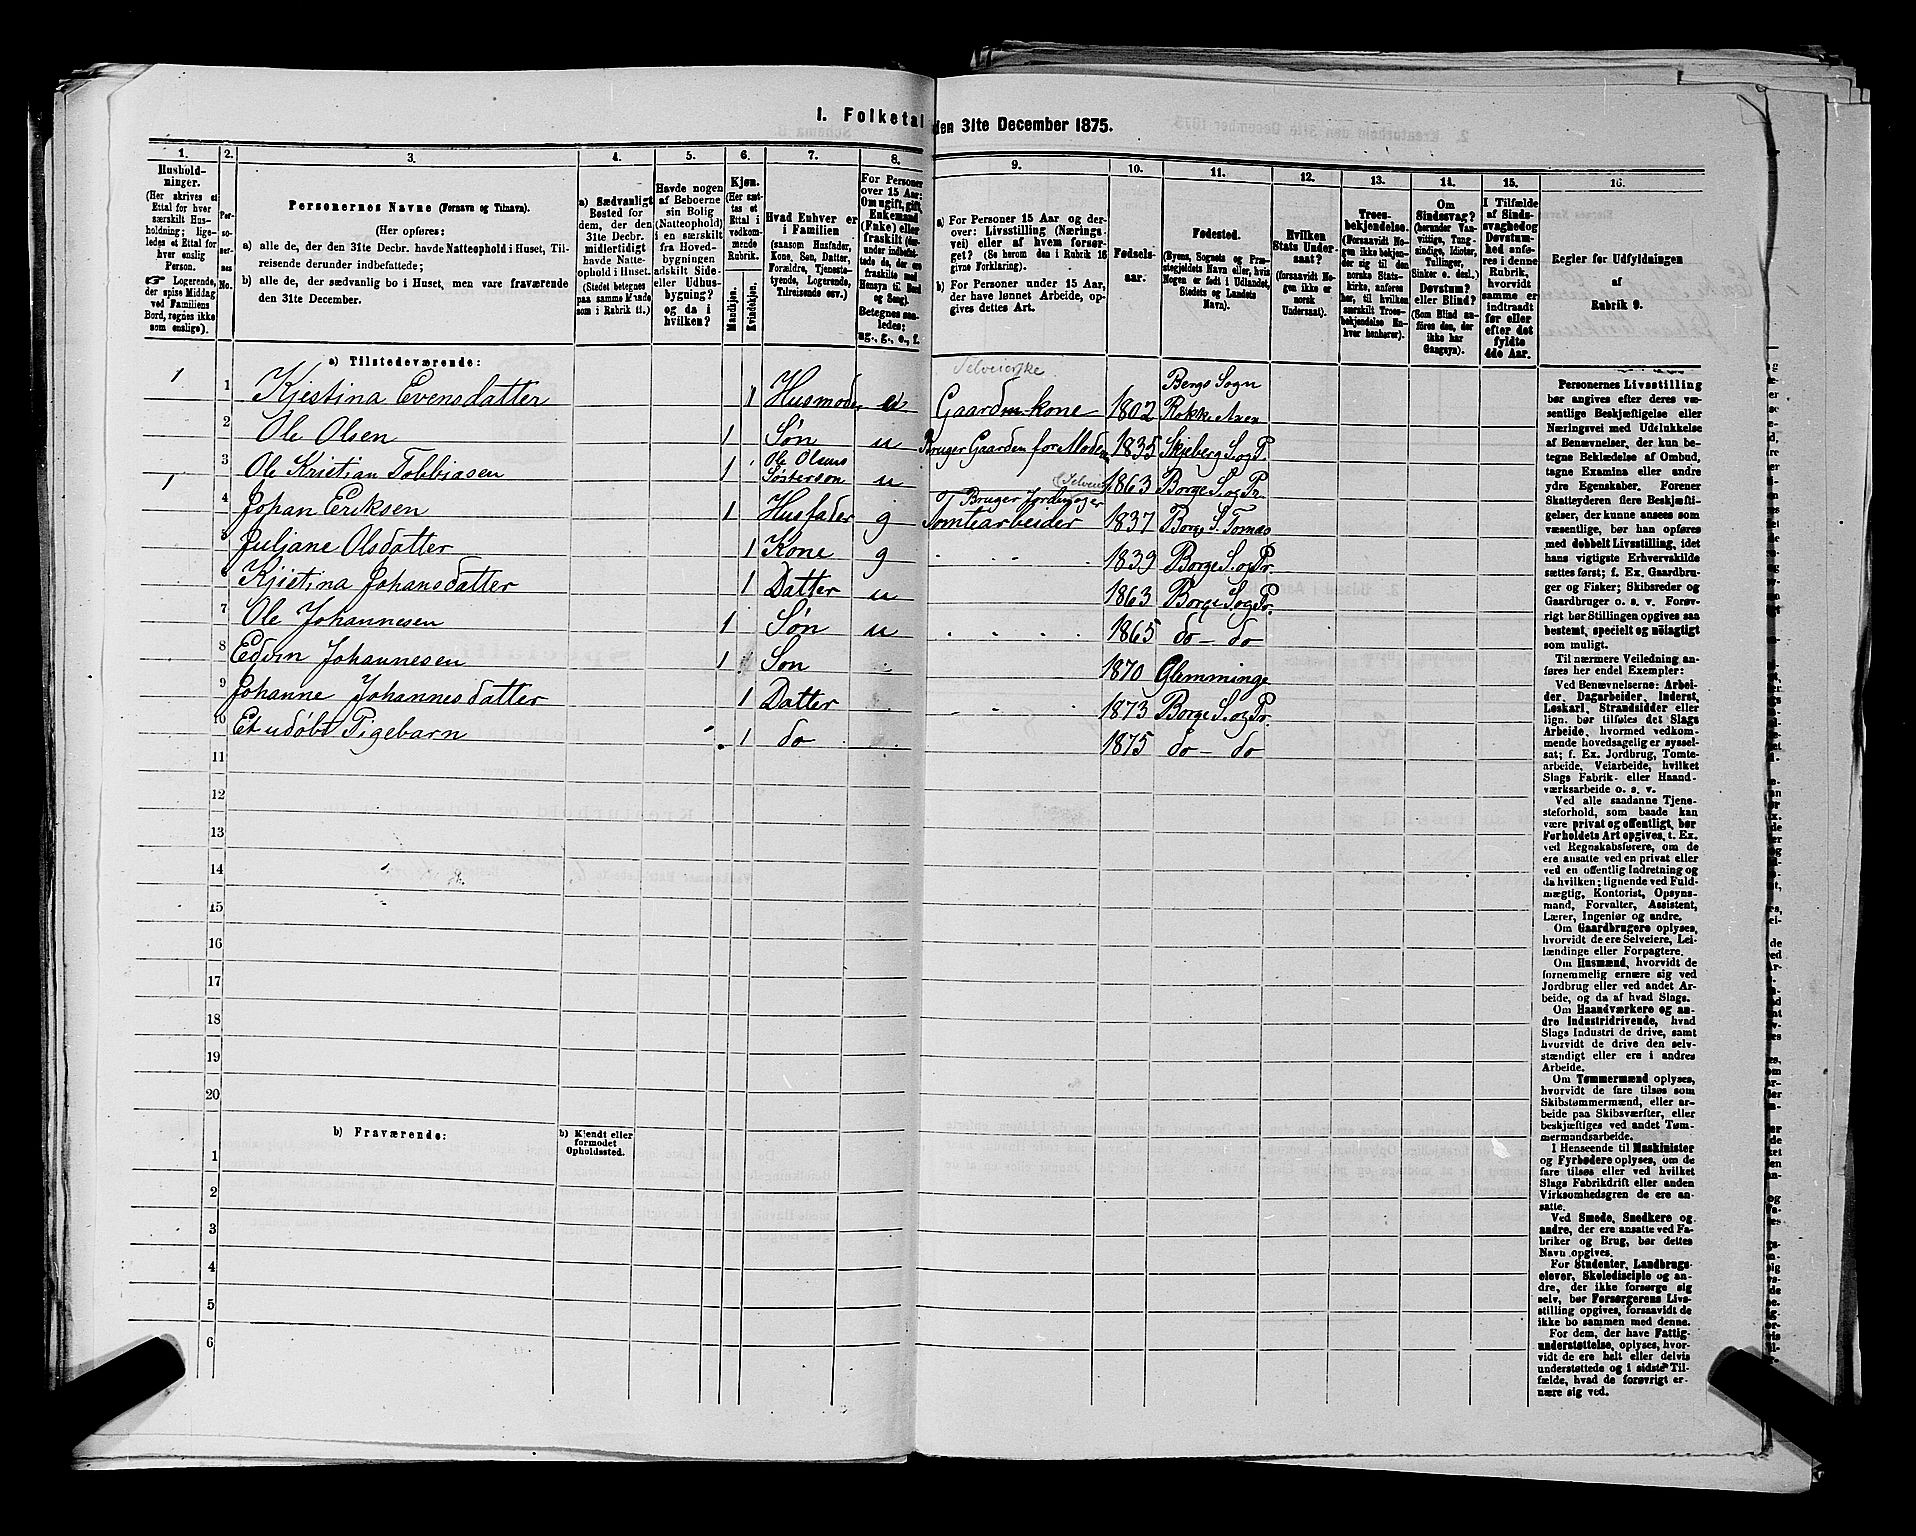 I. Folketal den 31te December 1875.
1. 2. 3. 4. 5. 6. 7. 8. 9. 10. 11. 12. 13. 14. 15. 16.
Hushold-
ninger.
(Her skrives et
Ettal for hver
særskilt Hus-
holdning; lige-
ledes et Ettal for
hver enslig
Person.
☞ Logerende,
der spise Middag
ved Familiens
Bord, regnes ikke
som enslige).
Per-
so-
ner-
nes
No.
Personernes Navne (Fornavn og Tilnavn).
(Her opføres:
a) alle de, der den 31te Decbr. havde Natteophold i Huset, Til-
reisende derunder indbefattede;
b) alle de, der sædvanlig bo i Huset, men vare fraværende
den 31te December.
a) Sædvanligt
Bosted for
dem, der den
31te Decbr.
midlertidigt
havde Natte-
ophold i Huset.
(Stedet betegnes
paa samme Maade
som i Rubrik 11.)
Havde nogen
af Beboerne
sin Bolig
(Natteophold)
i en særskilt
fra Hoved-
bygningen
adskilt Side-
eller Udhus-
bygning?
og da i
hvilken?
Kjøn.
(Her sæt-
tes et
Ettal i
vedkom-
mende
Rubrik.
Mandkjøn.
Kvindekjøn.
Hvad Enhver er
i Familien
(saasom Husfader,
Kone, Søn, Datter,
Forældre, Tjeneste-
tyende, Logerende,
Tilreisende osv.)
For Personer
over 15 Aar:
Om ugift, gift,
Enkemand
(Enke) eller
fraskilt (der-
under indbefat-
tede de, der ere
fraskilte med
Hensyn til Bord
og Seng).
Betegnes saa-
ledes:
ug., g., e., f.
a) For Personer 15 Aar og der-
over: Livsstilling (Nærings-
vei) eller af hvem forsør-
get? (Se herom den i Rubrik 16
givne Forklaring).
b) For Personer under 15 Aar,
der have lønnet Arbeide, op-
gives dettes Art.
Fødsels-
aar.
Fødested.
(Byens, Sognets og Præ-
stegjeldets Navn eller, hvis
Nogen er født i Udlandet,
Stedets og Landets
Navn).
Hvilken
Stats Under-
saat?
(forsaavidt No-
gen ikke er
norsk
Undersaat).
Troes-
bekjendelse.
(Forsaavidt No-
gen ikke bekjen-
der sig til den
norske Stats-
kirke, anføres
her, til hvilken
særskilt Troes-
bekjendelse En-
hver henhører).
Om
Sindssvag?
(herunder Van-
vittige, Tung-
sindige, Idioter,
Tullinger,
Sinker o. desl.)
Døvstum?
eller Blind?
(Som Blind an-
føres den, der
ikke har
Gangsyn).
I Tilfælde
af Sinds-
svaghed og
Døvstum-
hed anfø-
res i denne
Rubrik,
hvorvidt
samme er
indtraadt
før eller
efter det
fyldte
4de Aar.
Regler for Udfyldningen
af
Rubrik 9.
a) Tilstedeværende:
Selveierske
1 1 Kjestina Evensdatter 1 Husmoder e Gaardmkone 1802 Bergs Sogn
Rokke Anex
2 Ole Olsen 1 Søn u Bruger Gaarden for Moderen 1835 Skjeberg S. og P.
3 Ole Kristian Tobbiasen 1 Ole Olsens
Søstersøn u 1863 Borge S. og Pr.
Selveier
Bruger Jordeneger
1 4 Johan Eriksen 1 Husfader g Tomtearbeider 1837 Borge S. Tomas
5 Juljane Olsdatter 1 Kone g 1839 Borge S. og Pr.
6 Kjistina Johansdatter 1 Datter u 1863 Borge S og Pr.
7 Ole Johannesen 1 Søn u 1865 do - do
8 Edvin Johannesen 1 Søn 1870 Glemminge
9 Johanne Johannesdatter 1 Datter 1873 Borge S. og Pr.
10 Et udøbt Pigebarn 1 do 1875 do - do
11
12
13
14
15
16
17
18
19
20
b) Fraværende:
b) Kjendt eller
formodet
Opholdssted.
1
2
3
4
5
6
Personernes Livsstilling
bør angives efter deres væ-
sentlige Beskjæftigelse eller
Næringsvei med Udelukkelse
af Benævnelser, der kun be-
tegne Beklædelse af Ombud,
tagne Examina eller andre
ydre Egenskaber. Forener
Skatteyderen flere Beskjæfti-
gelser, der kunne ansees som
væsentlige, bør han opføres
med dobbelt Livsstilling, idet
hans vigtigste Erhvervskilde
sættes først; f. Ex. Gaardbru-
ger og Fisker; Skibsreder og
Gaardbruger o. s. v. Forøv-
rigt bør Stillingen opgives saa
bestemt, specielt og nöiagtigt
som muligt.
Til nærmere Veiledning an-
føres her endel Exempler:
Ved Benævnelserne: Arbei-
der, Dagarbeider, Inderst,
Løskarl, Strandsidder eller
lign. bør tilføies det Slags
Arbeide, hvormed vedkom-
mende hovedsagelig er syssel-
sat; f. Ex. Jordbrug, Tomte-
arbeide, Veiarbeide, hvilket
Slags Fabrik- eller Haand-
værksarbeide o. s. v.
Ved alle saadanne Tjene-
steforhold, som baade kan
være privat og offentligt, bør
Forholdets Art opgives, t. Ex.
ved Regnskabsførere, om de
ere ansatte ved en privat eller
ved en offentlig Indretning og
da hvilken; lignende ved Fuld-
mægtig, Kontorist, Opsyns-
mand, Forvalter, Assistent,
Lærer, Ingeniør og andre.
Om Gaardbrugere oplyses,
hvorvidt de ere Selveiere, Lei-
lændinge eller Forpagtere.
Om Husmænd, hvorvidt de
fornemmelig ernære sig ved
Jordbrug eller ved andet Ar-
beide, og da af hvad Slags.
Om Haandværkere og an-
dre Industridrivende, hvad
Slags Industri de drive, samt
hvorvidt de drive den selv-
stændigt eller ere i andres
Arbeide.
Om Tømmermænd oplyses,
hvorvidt de fare tilsøs som
Skibstømmermænd, eller ar-
beide paa Skibsværfter, eller
beskjæftiges ved andet Tøm-
mermandsarbeide.
I Henseende til Maskinister
og Fyrbødere oplyses, om de
fare tilsøs eller ved hvilket
Slags Fabrikdrift eller anden
Virksomhedsgren de ere an-
satte.
Ved Smede, Snedkere og
andre, der ere ansatte ved Fa-
briker og Brug, bør dettes
Navn opgives.
For Studenter, Landbrugs-
elever, Skoledisciple og an-
dre, der ikke forsørge sig
selv, bør Forsørgerens Livs-
stilling opgives, forsaavidt de
ikke bo sammen med denne.
For dem, der have Fattig-
understøttelse, oplyses, hvor-
vidt de ere helt eller delvis
understøttede og i sidste Til-
fælde, hvad de forøvrigt er-
nære sig ved.